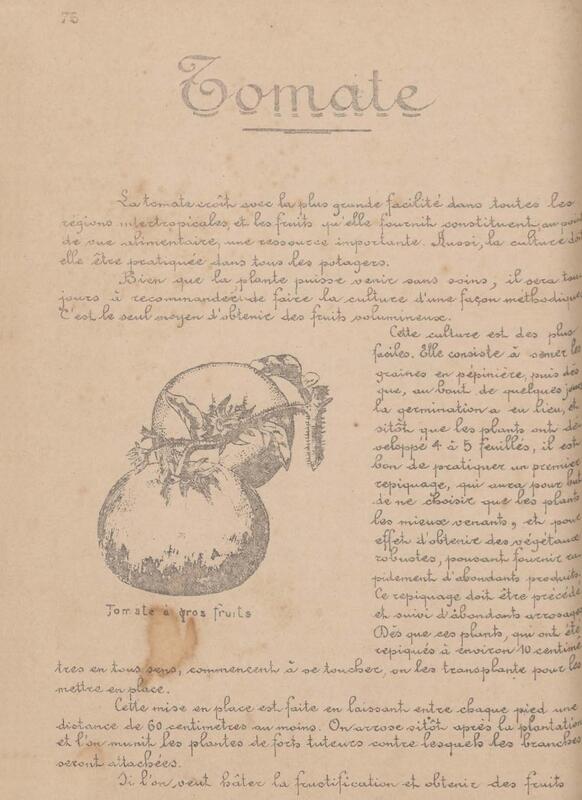 75
Tomate
La tomate croît avec la plus grande facilité dans toutes les
régions intertropicales, et les fruits qu'elle fournit constituent, au point
de vue alimentaire, une ressource importante. Aussi, la culture doit
elle être pratiquée dans tous les potagers.
Bien que la plante puisse venir sans soins, il sera tou-
jours à recommander de faire la culture d'une façon méthodique
C'est le seul moyen d'obtenir des fruits volumineux.
Cette culture est des plus
faciles. Elle consiste à semer les
graines en pépinière, puis dès
que, au bout de quelques jours
la germination a eu lieu, et
sitôt que les plants ont dé-
veloppé 4 à 5 feuilles, il est
bon de pratiquer un premier
repiquage, qui aura pour but
de ne choisir que les plants
les mieux venants, et pour
effet d'obtenir des végétaux
robustes, pouvant fournir ra-
pidement d'abondants produits.
Ce repiquage doit être précédé
et suivi d'abondants arrosages
Dès que ces plants, qui ont été
repiqués à environ 10 centimè
Tomate à gros fruits
tres en tous sens, commencent à se toucher, on les transplante pour les
mettre en place.
Cette mise en place est faite en laissant entre chaque pied une
distance de 60 centimètres au moins. On arrose sitôt après la plantation
et l'on munit les plantes de forts tuteurs contre lesquels les branches
seront attachées.
Si l'on veut hâter la fructification et obtenir des fruits